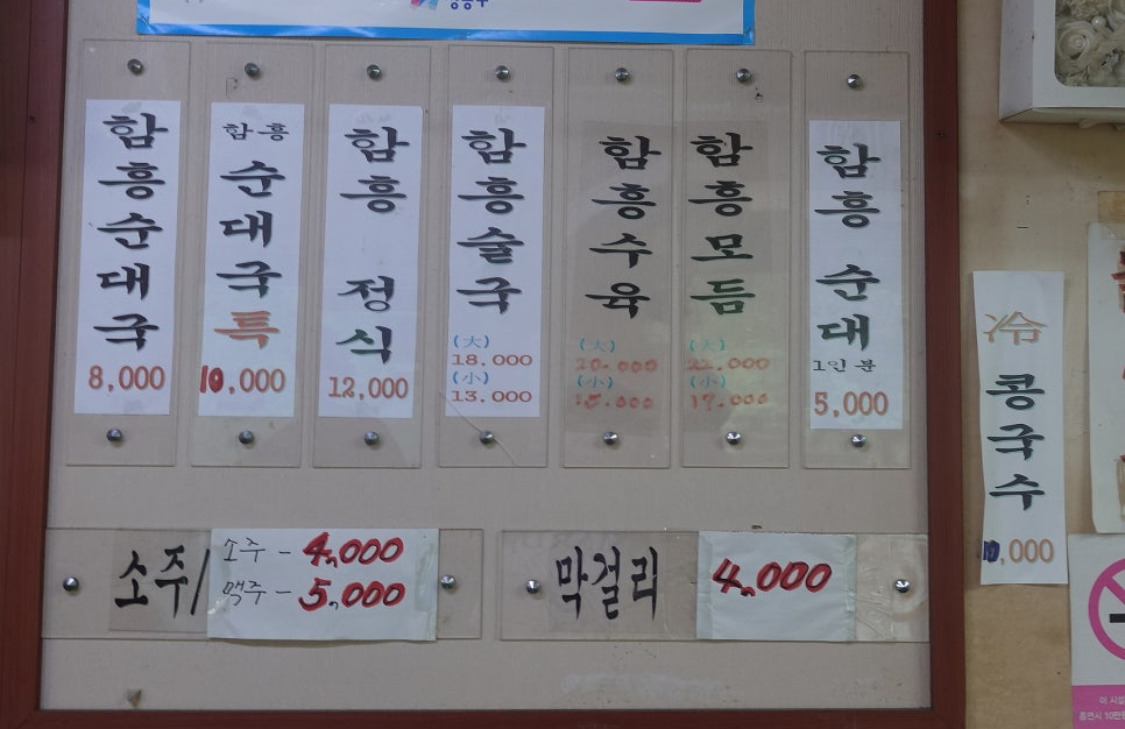 함흥순대국
8,000
함흥
순대국
특
10,000
함흥 정식
12,000
함흥술국
(大)
18.000
(小)
13.000
함흥수육
(大)
20.000
(小)
15.000
함흥모듬
(大)
22.000
(小)
17.000
함흥 순대
1인분
5,000
冷 콩국수
10,000
소주/
소주 - 4,000
맥주 - 5,000
막걸리 4,000